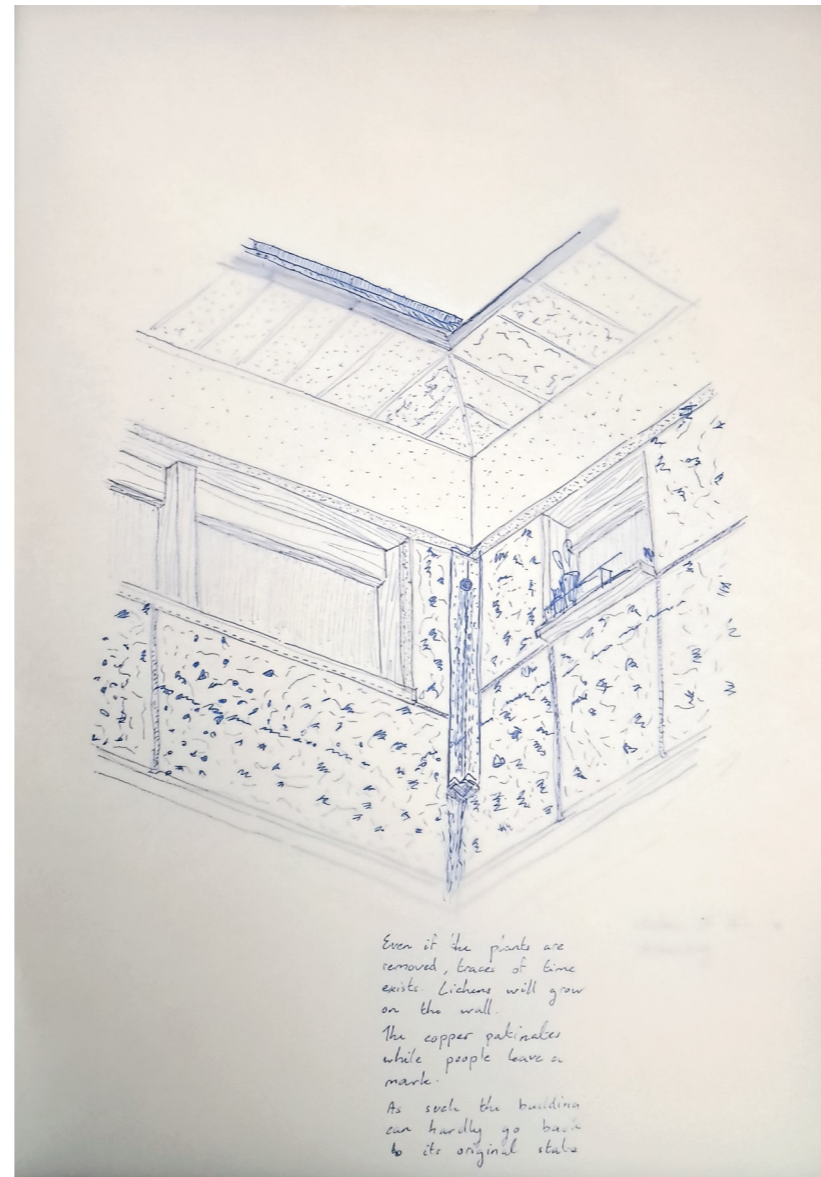 Even if the plants are
removed, traces of time
exists. Lichens will grow
on the wall.
The copper patinates
while people leave a
mark.
As such the building
can hardly go back
to its original state